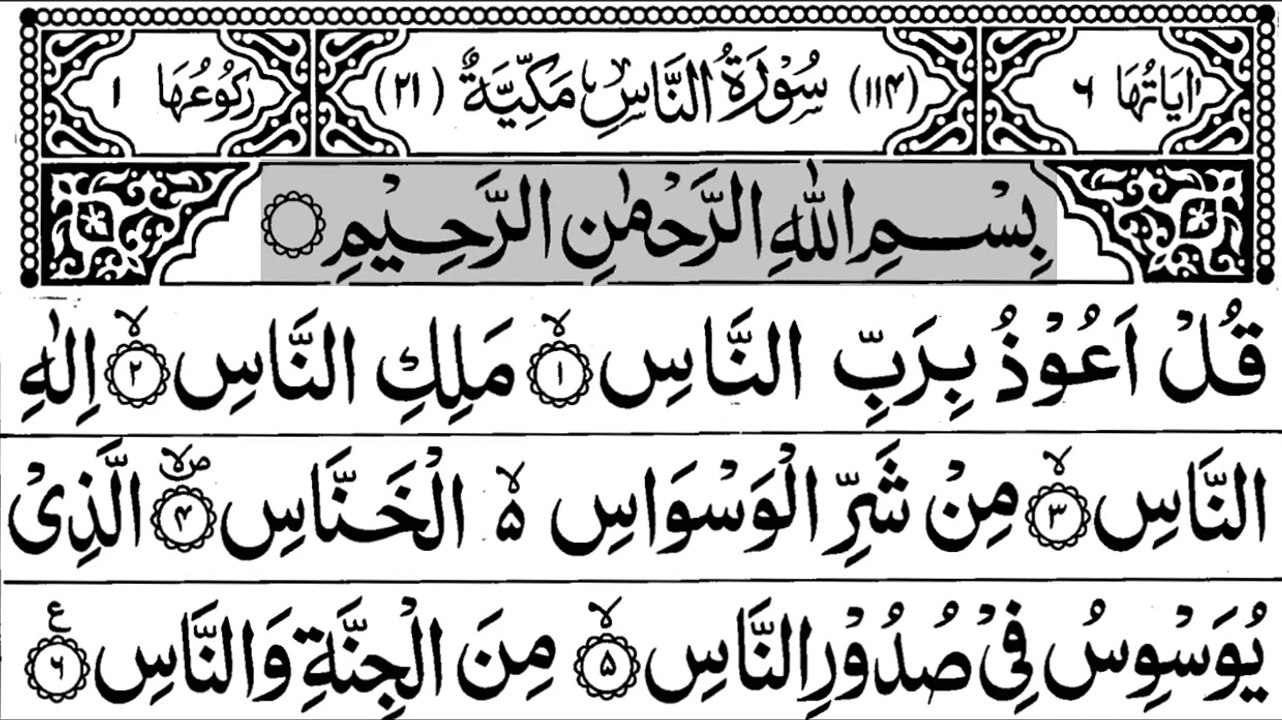 اٰيَاتُهَا ٦ (١١٤) سُوْرَةُ النَّاسِ مَكِّيَّةٌ (٢١) رُكُوْعُهَا ١
بِسْمِ اللّٰهِ الرَّحْمٰنِ الرَّحِيْمِ
قُلْ اَعُوْذُ بِرَبِّ النَّاسِ ۙ﴿١﴾ مَلِكِ النَّاسِ ۙ﴿٢﴾ اِلٰهِ
النَّاسِ ۙ﴿٣﴾ مِنْ شَرِّ الْوَسْوَاسِ ۙ۵ الْخَنَّاسِ ۪ۙ﴿۴﴾ الَّذِىْ
يُوَسْوِسُ فِىْ صُدُوْرِ النَّاسِ ۙ﴿۵﴾ مِنَ الْجِنَّةِ وَالنَّاسِ ﴿٦﴾ ع